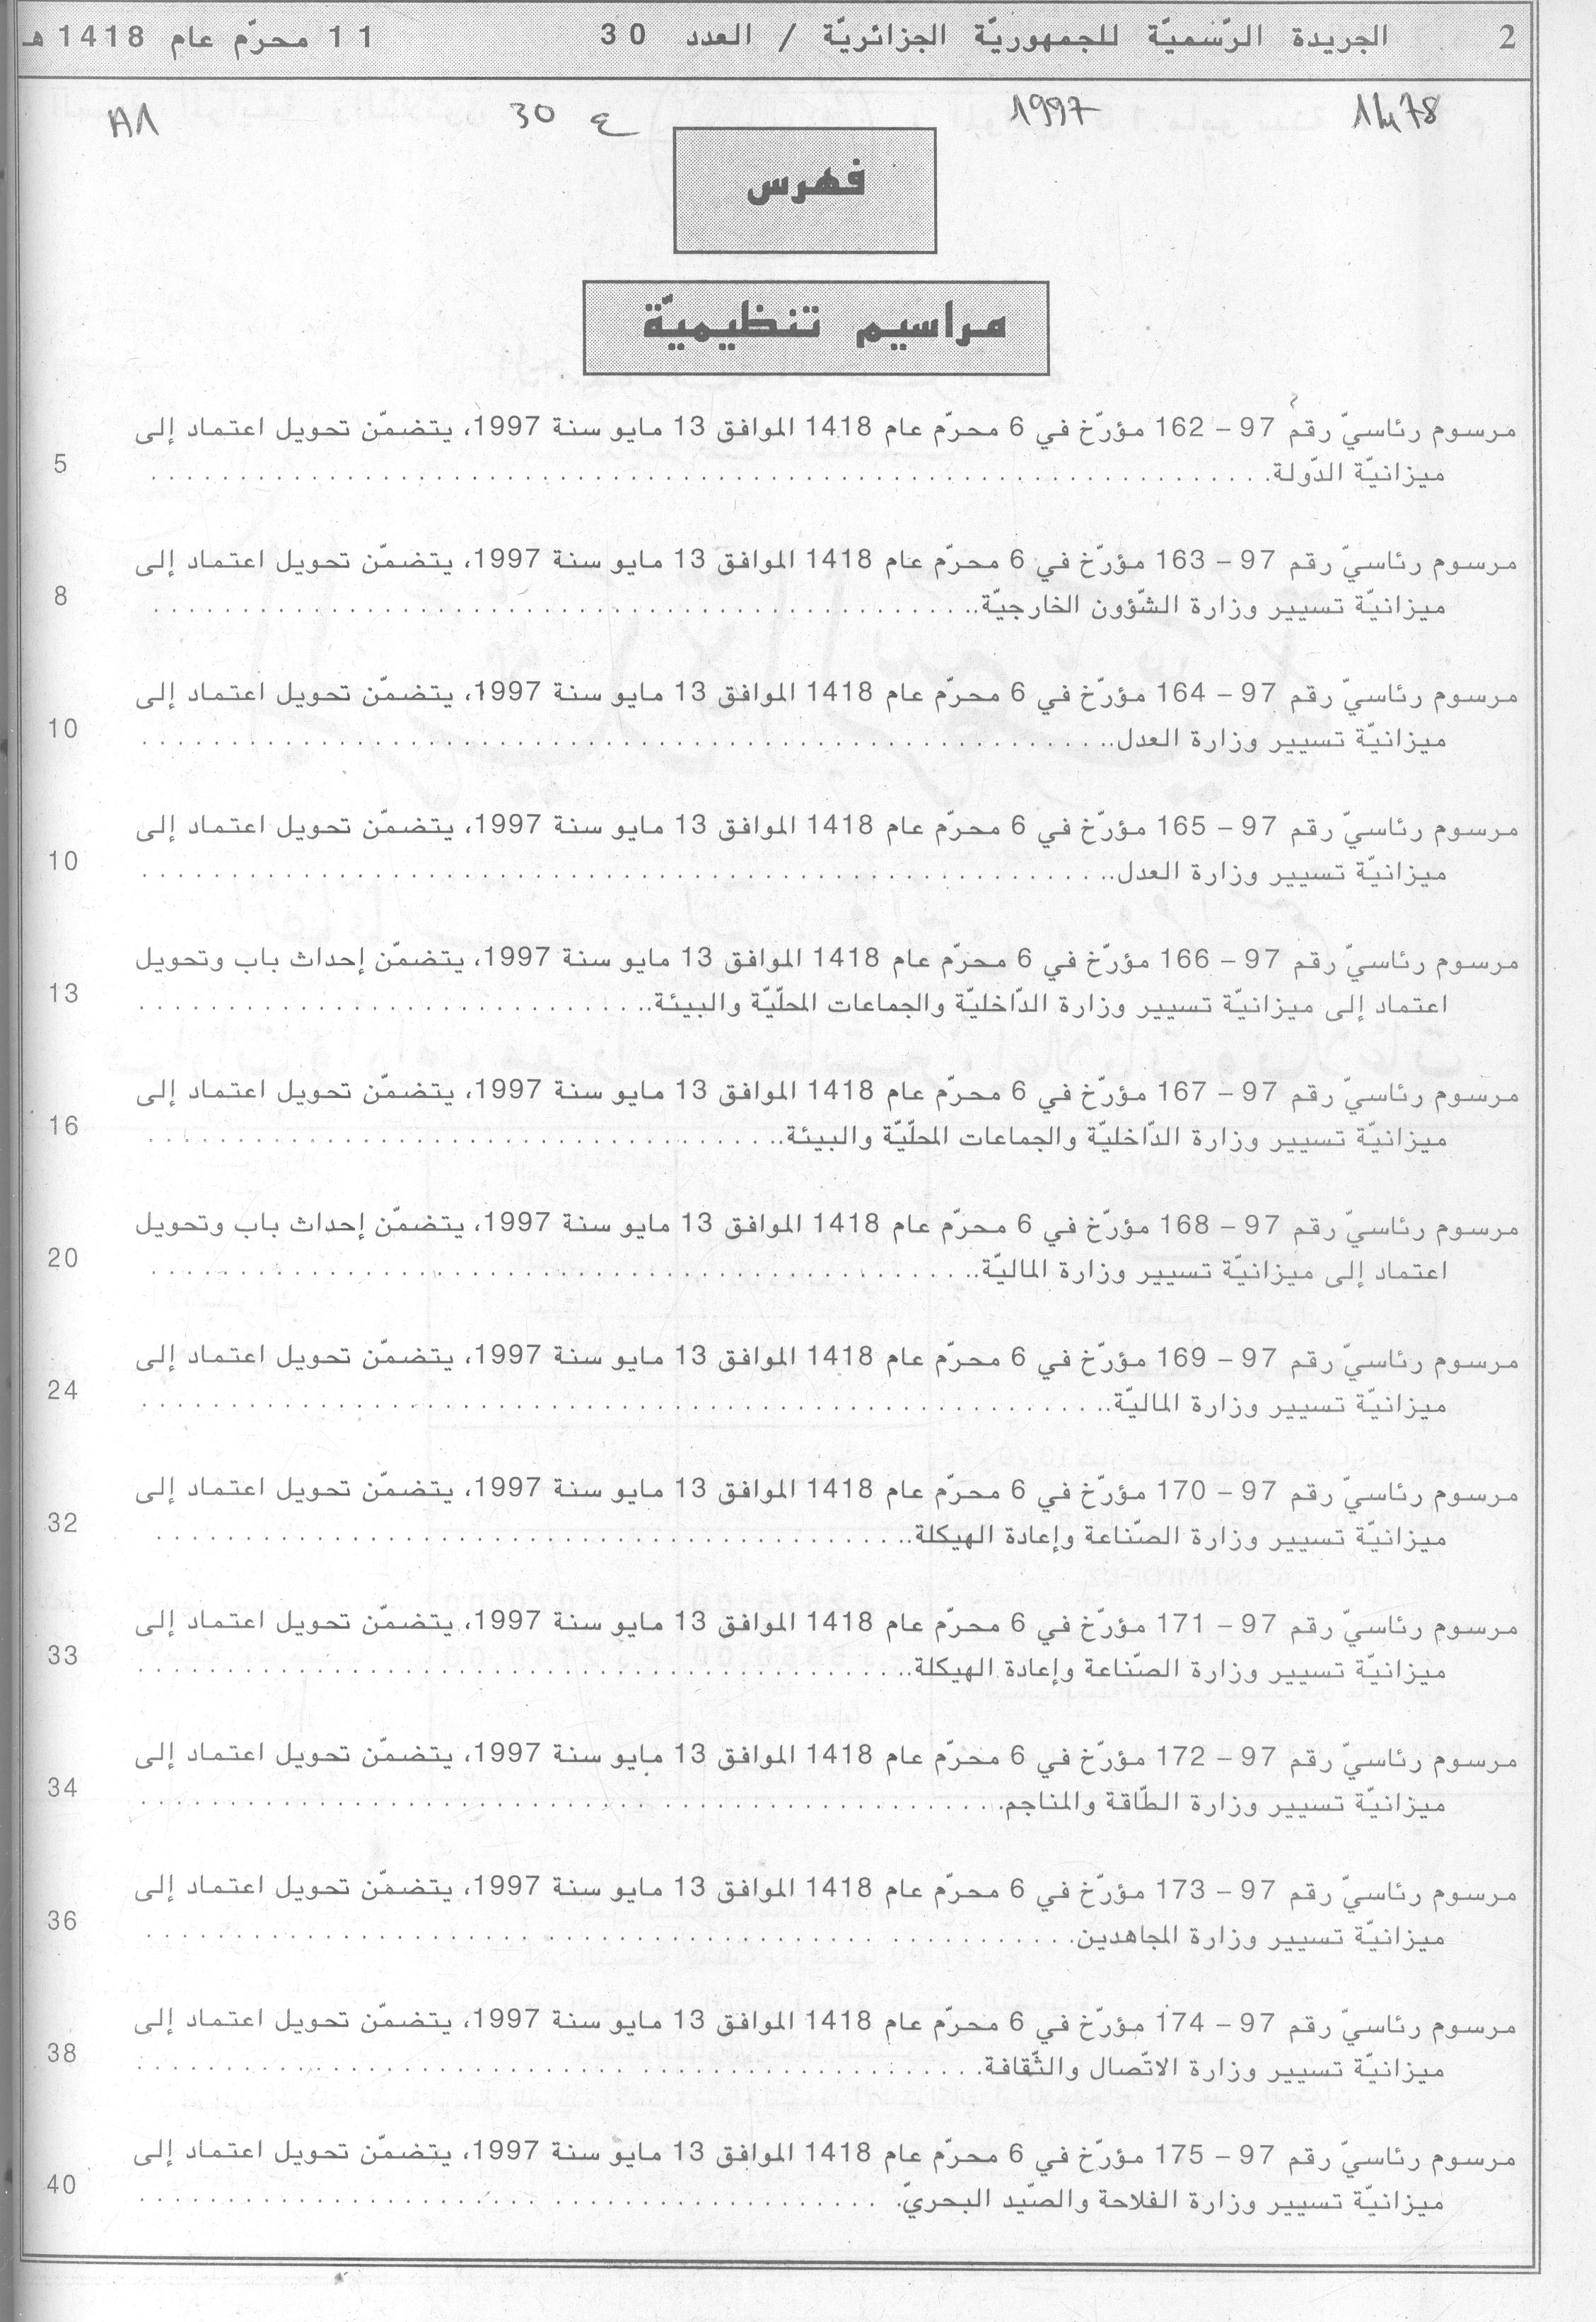 2 الجريدة الرّسميّة للجمهوريّة الجزائريّة / العدد 30 11 محرّم عام 1418 هـ
1997 ع 30 A1
فهرس
مراسيم تنظيميّة
مرسوم رئاسيّ رقم 97 - 162 مؤرّخ في 6 محرّم عام 1418 الموافق 13 مايو سنة 1997، يتضمّن تحويل اعتماد إلى
ميزانيّة الدّولة. 5
مرسوم رئاسيّ رقم 97 - 163 مؤرّخ في 6 محرّم عام 1418 الموافق 13 مايو سنة 1997، يتضمّن تحويل اعتماد إلى
ميزانيّة تسيير وزارة الشّؤون الخارجيّة.. 8
مرسوم رئاسيّ رقم 97 - 164 مؤرّخ في 6 محرّم عام 1418 الموافق 13 مايو سنة 1997، يتضمّن تحويل اعتماد إلى
ميزانيّة تسيير وزارة العدل.. 10
مرسوم رئاسيّ رقم 97 - 165 مؤرّخ في 6 محرّم عام 1418 الموافق 13 مايو سنة 1997، يتضمّن تحويل اعتماد إلى
ميزانيّة تسيير وزارة العدل.. 10
مرسوم رئاسيّ رقم 97 - 166 مؤرّخ في 6 محرّم عام 1418 الموافق 13 مايو سنة 1997، يتضمّن إحداث باب وتحويل
اعتماد إلى ميزانيّة تسيير وزارة الدّاخليّة والجماعات المحلّيّة والبيئة.. 13
مرسوم رئاسيّ رقم 97 - 167 مؤرّخ في 6 محرّم عام 1418 الموافق 13 مايو سنة 1997، يتضمّن تحويل اعتماد إلى
ميزانيّة تسيير وزارة الدّاخليّة والجماعات المحلّيّة والبيئة.. 16
مرسوم رئاسيّ رقم 97 - 168 مؤرّخ في 6 محرّم عام 1418 الموافق 13 مايو سنة 1997، يتضمّن إحداث باب وتحويل
اعتماد إلى ميزانيّة تسيير وزارة الماليّة.. 20
مرسوم رئاسيّ رقم 97 - 169 مؤرّخ في 6 محرّم عام 1418 الموافق 13 مايو سنة 1997، يتضمّن تحويل اعتماد إلى
ميزانيّة تسيير وزارة الماليّة.. 24
مرسوم رئاسيّ رقم 97 - 170 مؤرّخ في 6 محرّم عام 1418 الموافق 13 مايو سنة 1997، يتضمّن تحويل اعتماد إلى
ميزانيّة تسيير وزارة الصّناعة وإعادة الهيكلة.. 32
مرسوم رئاسيّ رقم 97 - 171 مؤرّخ في 6 محرّم عام 1418 الموافق 13 مايو سنة 1997، يتضمّن تحويل اعتماد إلى
ميزانيّة تسيير وزارة الصّناعة وإعادة الهيكلة.. 33
مرسوم رئاسيّ رقم 97 - 172 مؤرّخ في 6 محرّم عام 1418 الموافق 13 مايو سنة 1997، يتضمّن تحويل اعتماد إلى
ميزانيّة تسيير وزارة الطّاقة والمناجم. 34
مرسوم رئاسيّ رقم 97 - 173 مؤرّخ في 6 محرّم عام 1418 الموافق 13 مايو سنة 1997، يتضمّن تحويل اعتماد إلى
ميزانيّة تسيير وزارة المجاهدين. 36
مرسوم رئاسيّ رقم 97 - 174 مؤرّخ في 6 محرّم عام 1418 الموافق 13 مايو سنة 1997، يتضمّن تحويل اعتماد إلى
ميزانيّة تسيير وزارة الاتّصال والثّقافة. 38
مرسوم رئاسيّ رقم 97 - 175 مؤرّخ في 6 محرّم عام 1418 الموافق 13 مايو سنة 1997، يتضمّن تحويل اعتماد إلى
ميزانيّة تسيير وزارة الفلاحة والصّيد البحريّ. 40